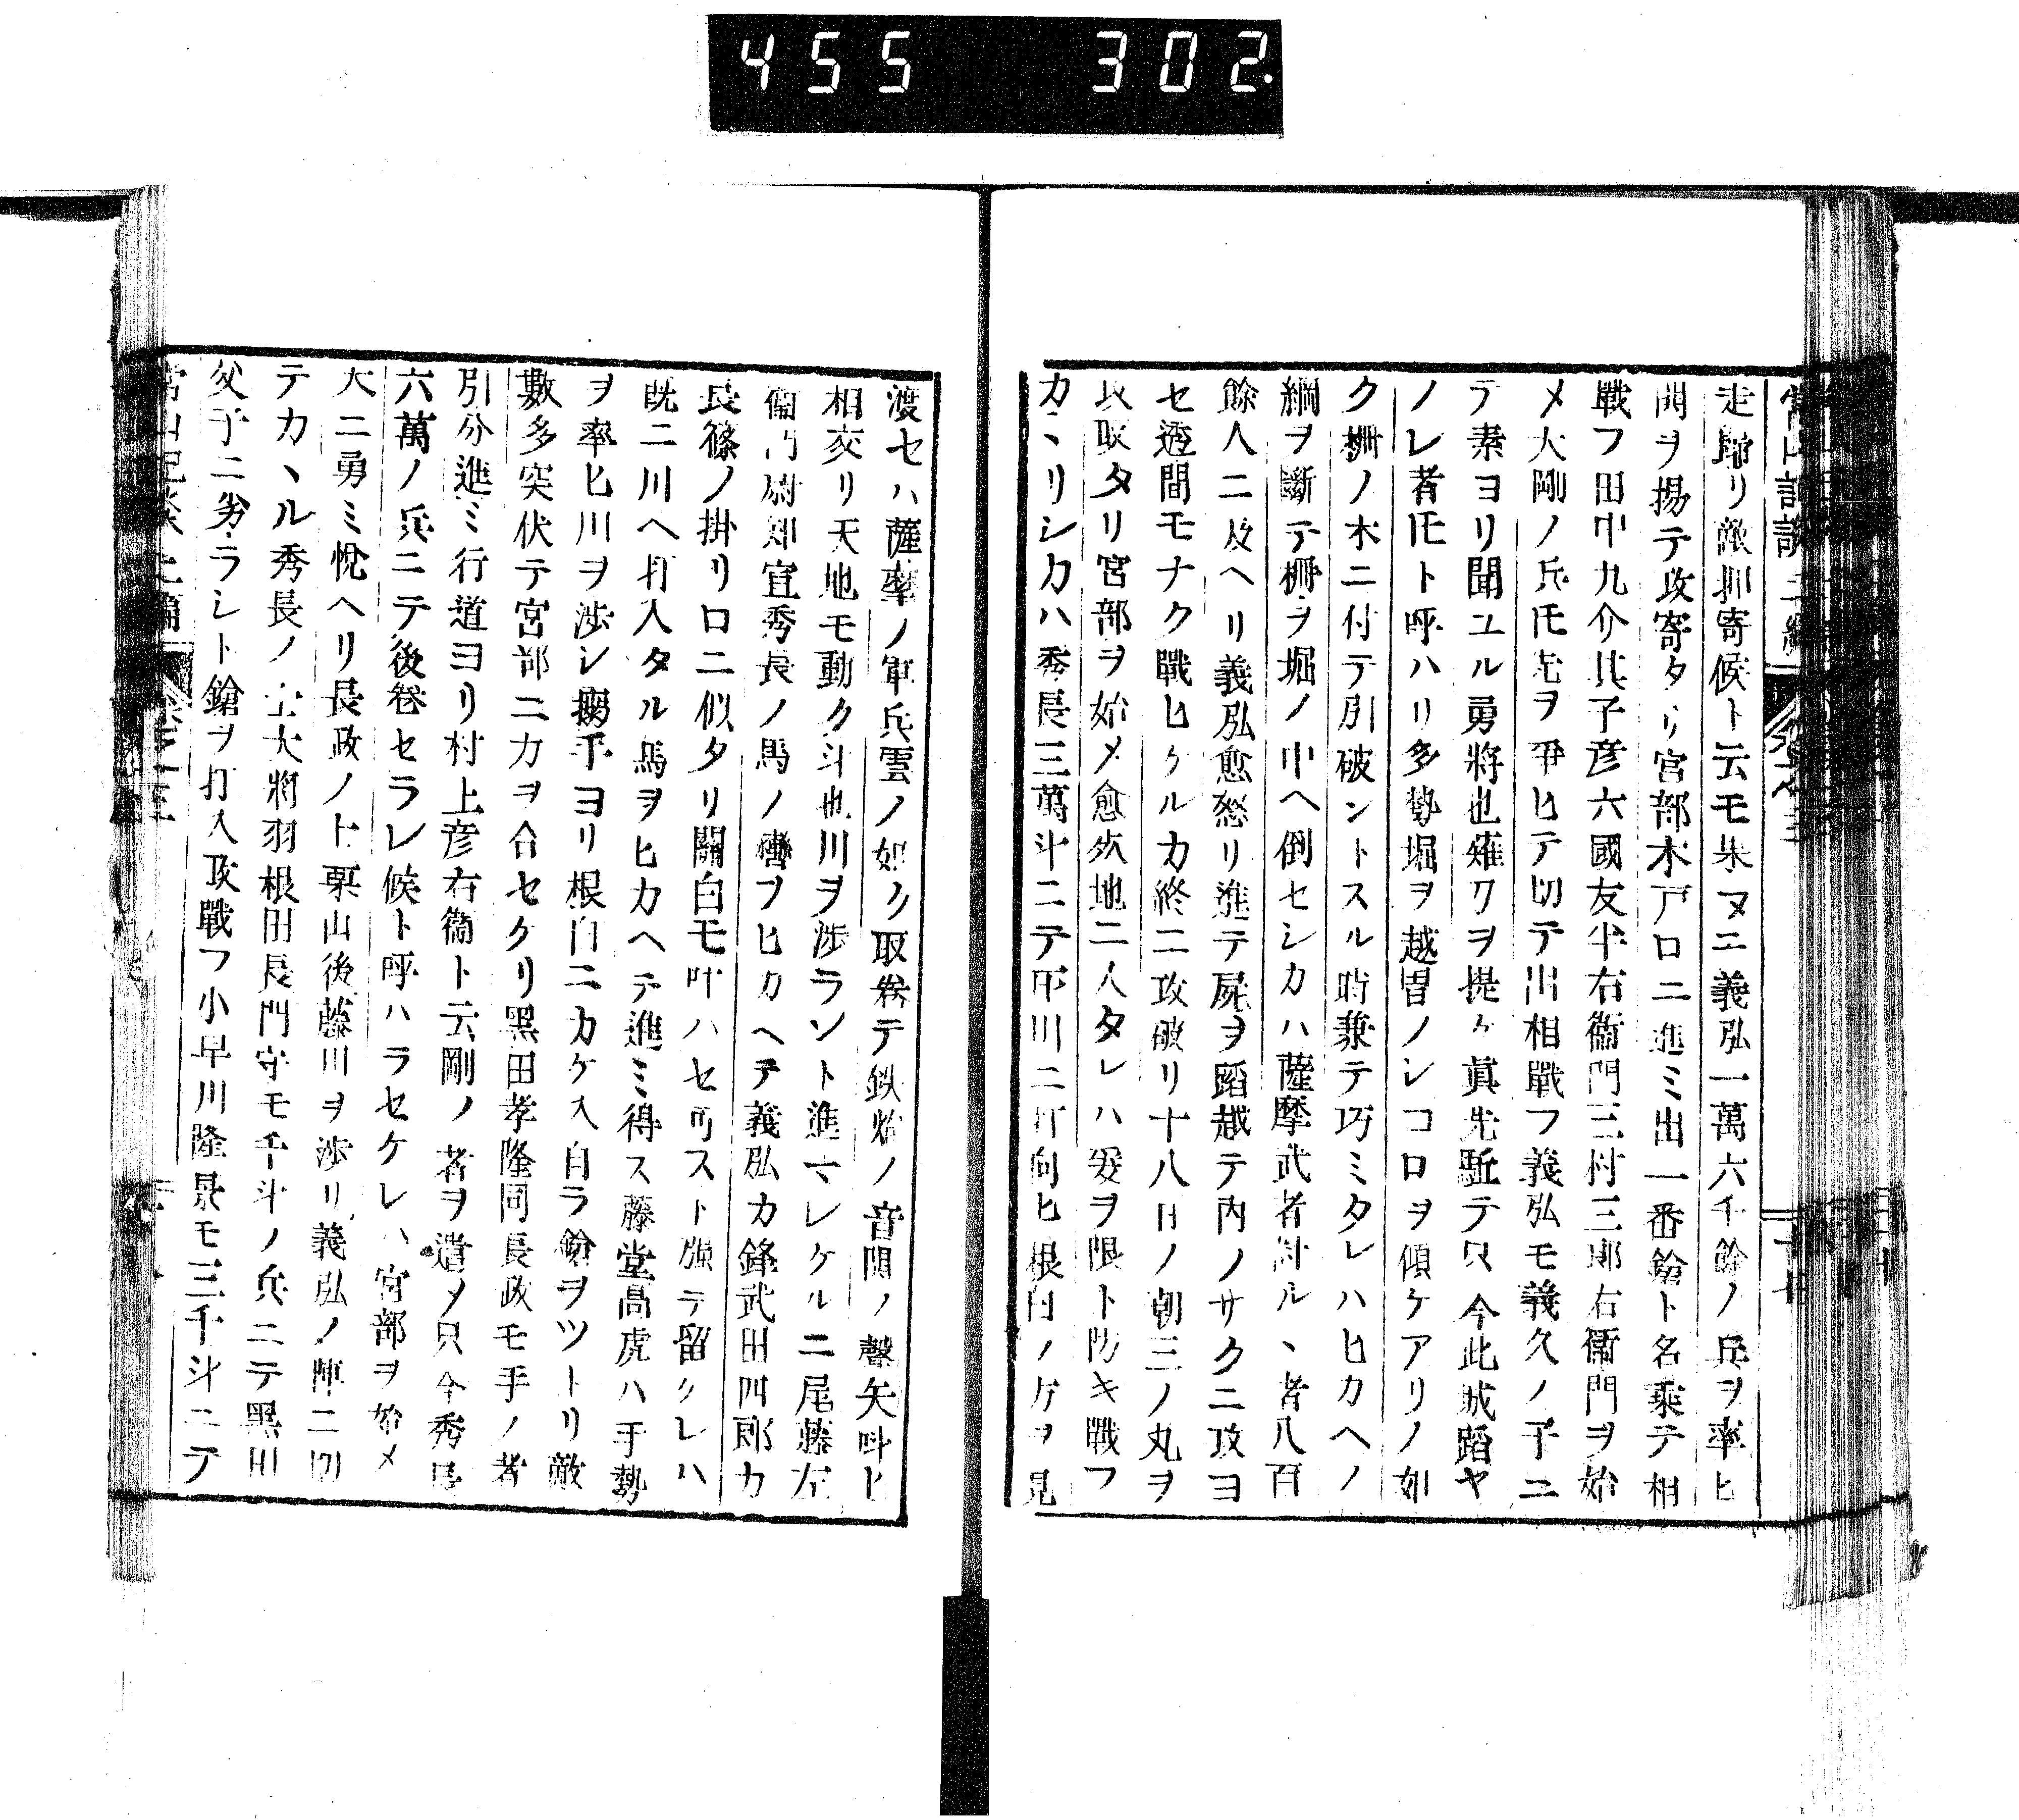 455 302
走歸リ敵押寄候ト云モ未タヌニ義弘一萬六千餘ノ兵ヲ率ヒ
鬨ヲ揚テ攻寄タリ宮部木戸口ニ進ミ出一番鎗ト名乘テ相
戰フ田中九介其子彦六國友半右衞門三村三郎右衞門ヲ始
メ大剛ノ兵𪜈先ヲ爭ヒテ切テ出相戰フ義弘モ義久ノ子ニ
テ素ヨリ聞ユル勇將也薙刀ヲ提ケ眞先ニ駈テ只今此城蹈ヤ
ノレ者𪜈ト呼ハリ多勢堀ヲ越冑ノシコロヲ傾ケアリノ如
ク柵ノ木ニ付テ引破ントスル時兼テ巧ミタレハヒカヘノ
綱ヲ斷テ柵ヲ堀ノ中ヘ倒セシカハ薩摩武者討ルヽ者八百
餘人ニ及ヘリ義弘愈怒リ進テ屍ヲ蹈越テ内ノサクニ攻ヨ
セ透間モナク戰ヒケルカ終ニ攻破リ十八日ノ朝三ノ丸ヲ
攻取タリ宮部ヲ始メ愈必地ニ入タレハ爰ヲ限ト防キ戰フ
カヽリシカハ秀長三萬斗ニテ耳川ニ打向ヒ根白ノ方ヲ見
渡セハ薩摩ノ軍兵雲ノ如ク取卷テ鉄炮ノ音鬨ノ聲矢叫ヒ
相交リ天地モ動ク斗也川ヲ渉ラント進マレケルニ尾藤左
衞門尉知宣秀長ノ馬ノ轡ヲヒカヘテ義弘カ鋒武田四郎カ
長篠ノ掛リ口ニ似タリ關白モ叶ハセ可スト強テ留クレハ
既ニ川ヘ打入タル馬ヲヒカヘテ進ミ得ス藤堂高虎ハ手勢
ヲ率ヒ川ヲ渉シ搦手ヨリ根白ニカケ入自ラ鎗ヲツトリ敵
數多突伏テ宮部ニ力ヲ合セケリ黑田孝隆同長政モ手ノ者
引分進ミ行道ヨリ村上彦右衞ト云剛ノ者ヲ遣メ只今秀長
六萬ノ兵ニテ後卷セラレ候ト呼ハラセケレハ宮部ヲ始メ
大ニ勇ミ悅ヘリ長政ノ士栗山後藤川ヲ渉リ義弘ノ陣ニ切
テカヽル秀長ノ士大將羽根田長門守モ千斗ノ兵ニテ黑田
父子ニ劣ラシト鎗ヲ打入攻戰フ小早川隆景モ三千斗ニテ